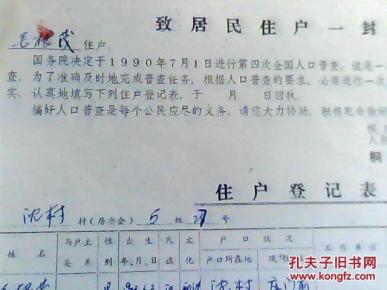 致居民住户一封
毛根茂 住户
国务院决定于1990年7月1日进行第四次全国人口普查，这是一
查。为了准确及时地完成普查任务，根据人口普查的要求，必要进行一次
实、认真地填写下列住户登记表，于 月 日回执。
搞好人口普查是每个公民应尽的义务，请您大力协助，积极配合做好
桐
住户登记表
沈村 村(居委会) 5 组 号
姓名 与户主关系 性别 出生年、月、日 民族 文化 户口状况 户口所在地 工作单位
男 汉 沈村
孔夫子旧书网